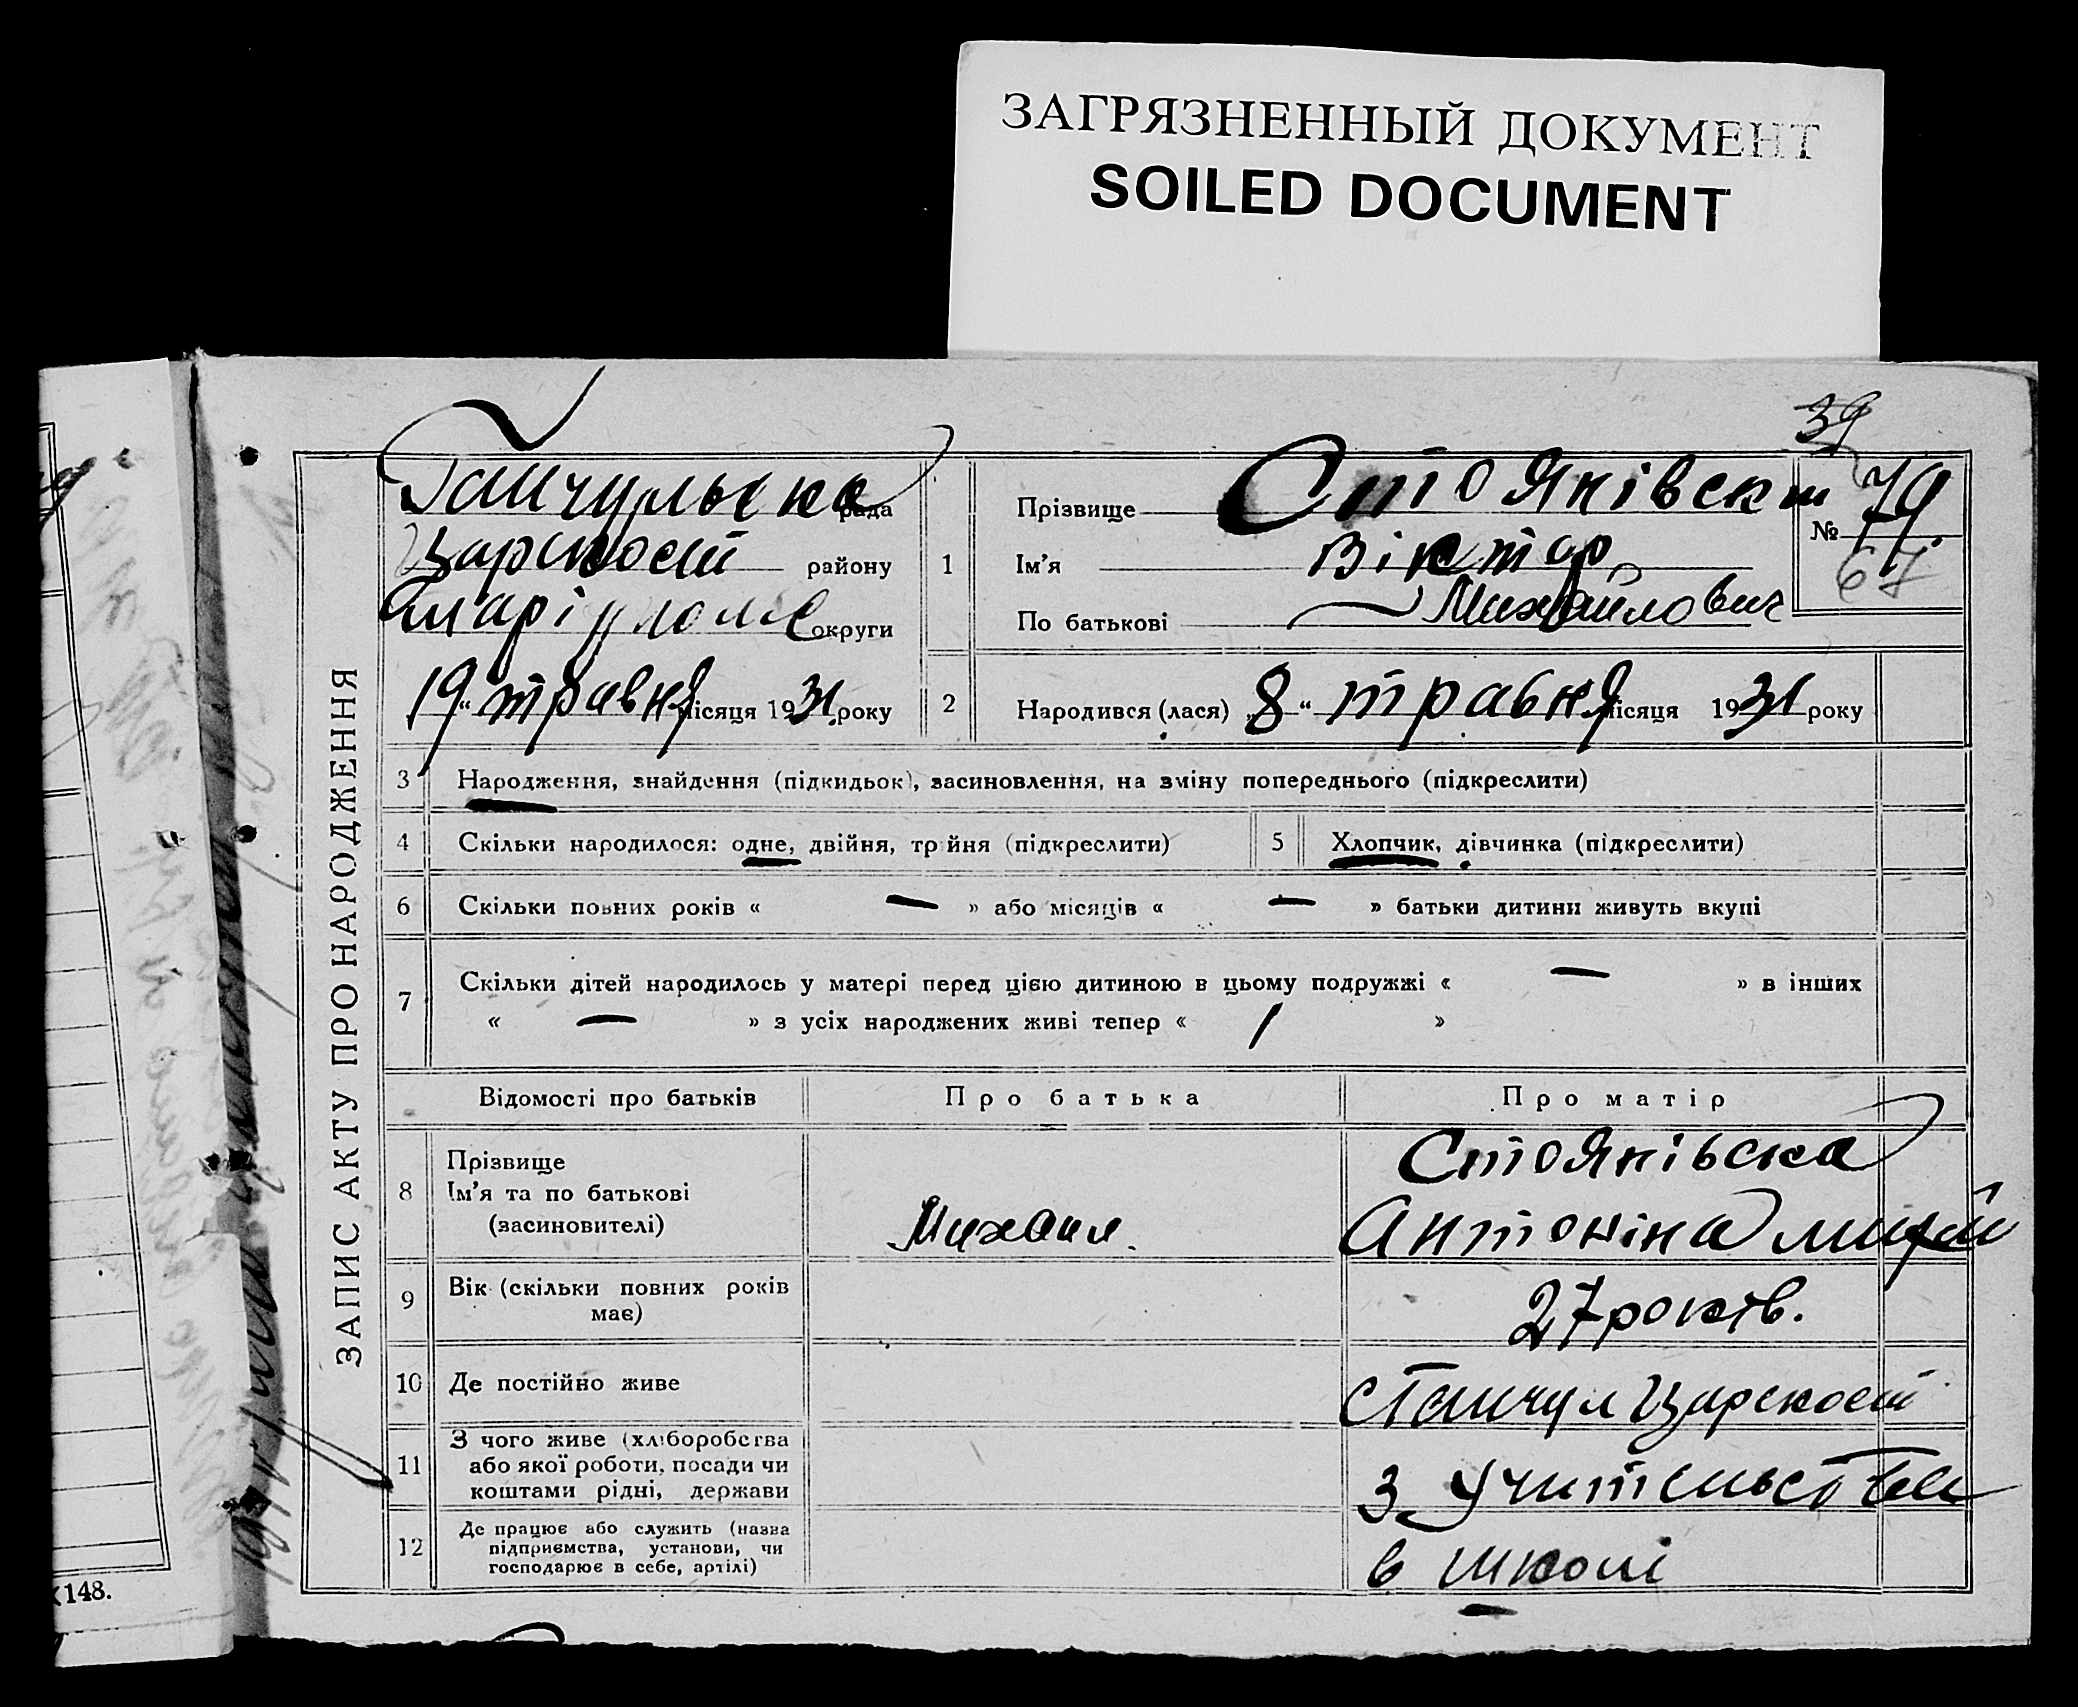 ЗАГРЯЗНЕННЫЙ ДОКУМЕНТ
SOILED DOCUMENT
39
ЗАПИС АКТУ ПРО НАРОДЖЕННЯ
Гайчульська рада
Царекост району
Маріупол округи
19 " травня місяця 1931 року
1
Прізвище Стояновськ
Ім'я Віктор
По батькові Михайлович
№ 79
67
2
Народився (лася) „8“ травня місяця 1931 року
3 Народження, знайдення (підкидьок), засиновлення, на зміну попереднього (підкреслити)
4 Скільки народилося: одне, двійня, трійня (підкреслити)
5 Хлопчик, дівчинка (підкреслити)
6 Скільки повних років « — » або місяців « — » батьки дитини живуть вкупі
7 Скільки дітей народилось у матері перед цією дитиною в цьому подружжі « — » в інших
« — » з усіх народжених живі тепер « 1 »
Відомості про батьків Про батька Про матір
8 Прізвище
Ім'я та по батькові
(засиновителі)
Михаил.
Стоянівська
Антоніна
9 Вік (скільки повних років
має)
27 років.
10 Де постійно живе
с Гайчул Царекост
11 З чого живе (хліборобства
або якої роботи, посади чи
коштами рідні, держави
З Учительства
12 Де працює або служить (назва
підприємства, установи, чи
господарює в себе, артілі)
в школі
148.